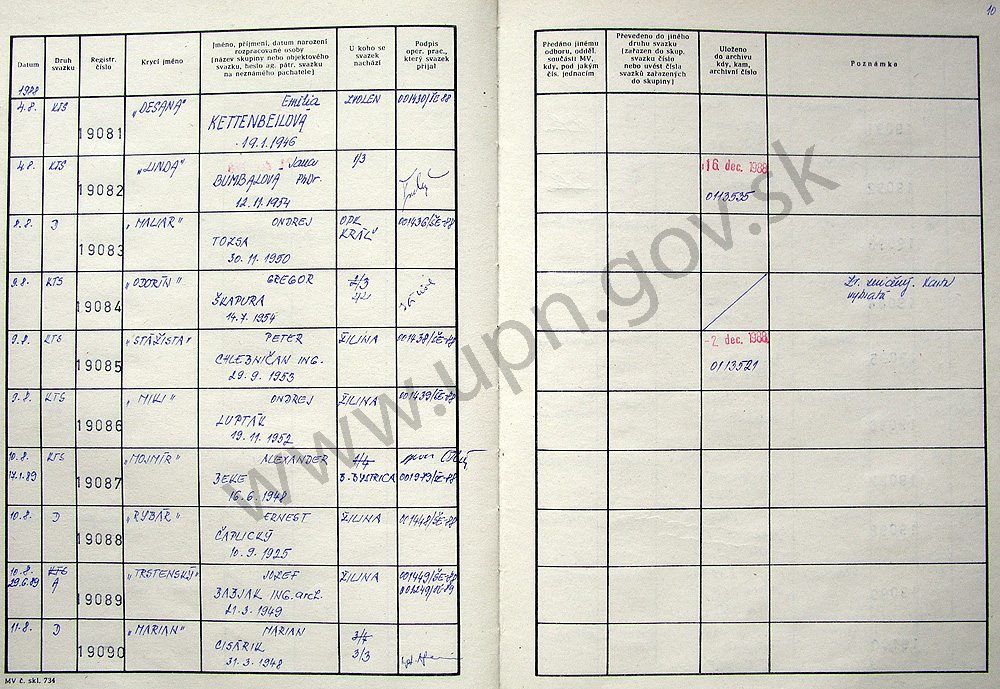 10
Datum
Druh svazku
Registr. číslo
Krycí jméno
Jméno, příjmení, datum narození rozpracované osoby (název skupiny nebo objektového svazku, heslo ag. pátr. svazku na neznámého pachatele)
U koho se svazek nachází
Podpis oper. prac., který svazek přijal
Předáno jinému odboru, odděl. součásti MV, kdy, pod jakým čís. jednacím
Převedeno do jiného druhu svazku (zařazen do skup. svazku číslo nebo uvést čísla svazků zařazených do skupiny)
Uloženo do archivu kdy, kam, archivní číslo
Poznámka
1988
4.8. KTS 19081 "DESANA" Emília ZVOLEN 001430/ŠE-88
KETTENBEILOVÁ
19.1.1946
4.8. KTS 19082 "LINDA" Jana 1/3 16. dec. 1988
BUMBALOVÁ PhDr. 0113535
12.11.1954
8.8. D 19083 "MALIAR" ONDREJ ODD. KRÁĽ 001436/ŠE-88
TOKSA
30.11.1950
9.8. KTS 19084 "ODORÍN" GREGOR 2/3
ŠKAPURA
14.7.1954
9.8. KTS 19085 "STÁŽISTA" PETER ŽILINA 001438/ŠE-88 -2. dec. 1988
CHLEBNIČAN ING. 0113521
29.9.1953
9.8. KTS 19086 "MIKI" ONDREJ ŽILINA 001439/ŠE-88
LUPTÁK
19.11.1952
10.8. KTS 19087 "MOJMÍR" ALEXANDER
17.1.89 BEKE B. BYSTRICA
16.6.1948
10.8. D 19088 "RYBÁR" ERNEST ŽILINA 001448/ŠE-88
ČAPLICKÝ
10.9.1925
10.8. KTS 19089 "TRSTENSKÝ" JOZEF ŽILINA 001449/ŠE-88
29.6.89 A BABJAK ING. arch.
21.3.1949
11.8. D 19090 "MARIAN" MARIAN 3/4
CISÁRIK 3/3
31.3.1948
MV č. skl. 734
www.upn.gov.sk